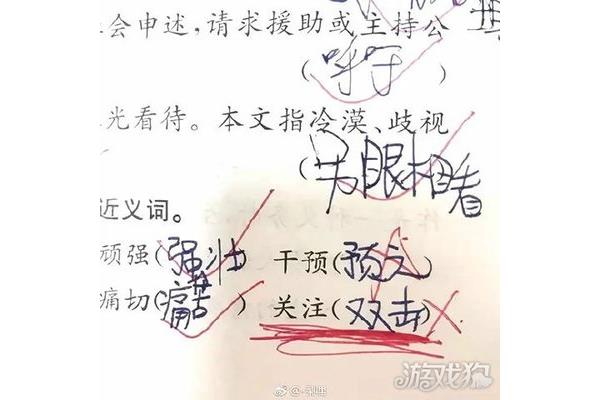 会申述,请求援助或主持公
(呼吁)
光看待。本文指冷漠、歧视
(另眼相看
近义词。
顽强(强壮 干预(预
痛切(痛苦) 关注(双击)
游戏狗